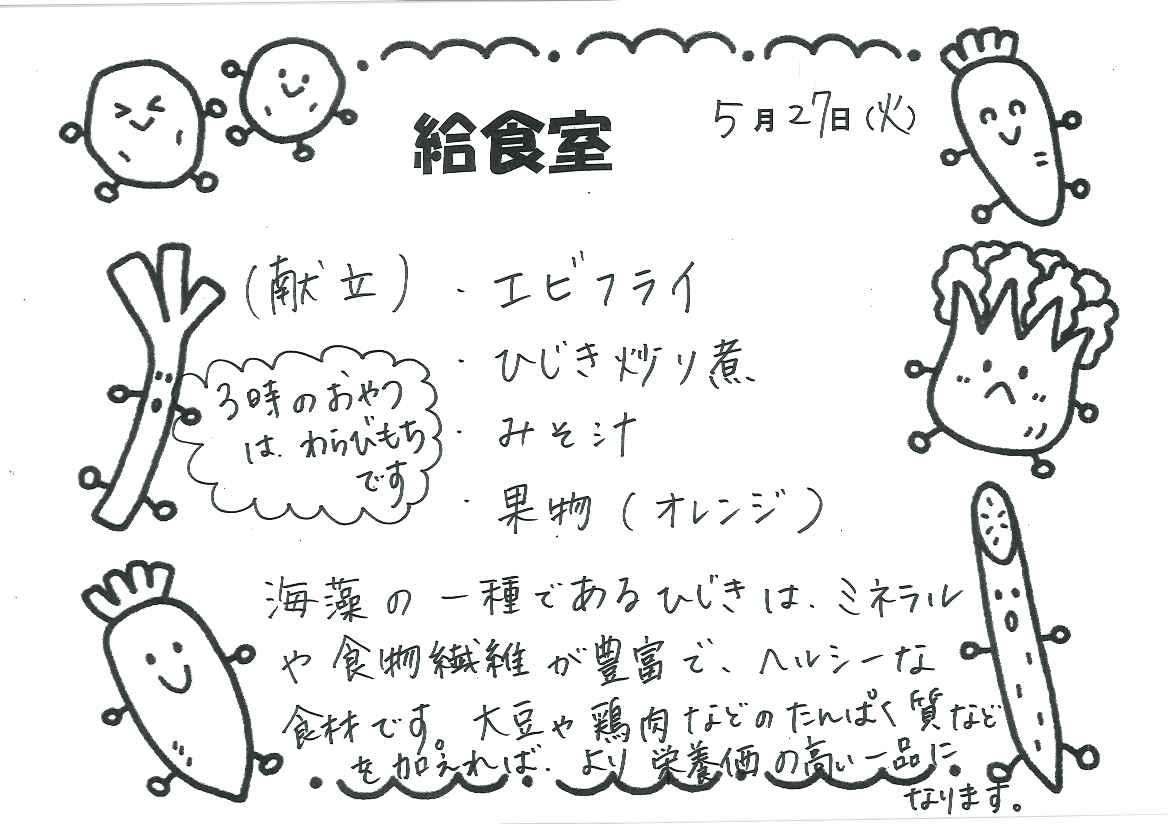 給食室
5月27日(火)
(献立)・エビフライ
・ひじき炒り煮
・みそ汁
・果物(オレンジ)
3時のおやつ
は、わらびもち
です
海藻の一種であるひじきは、ミネラル
や食物繊維が豊富で、ヘルシーな
食材です。大豆や鶏肉などのたんぱく質など
を加えれば、より栄養価の高い一品に
なります。